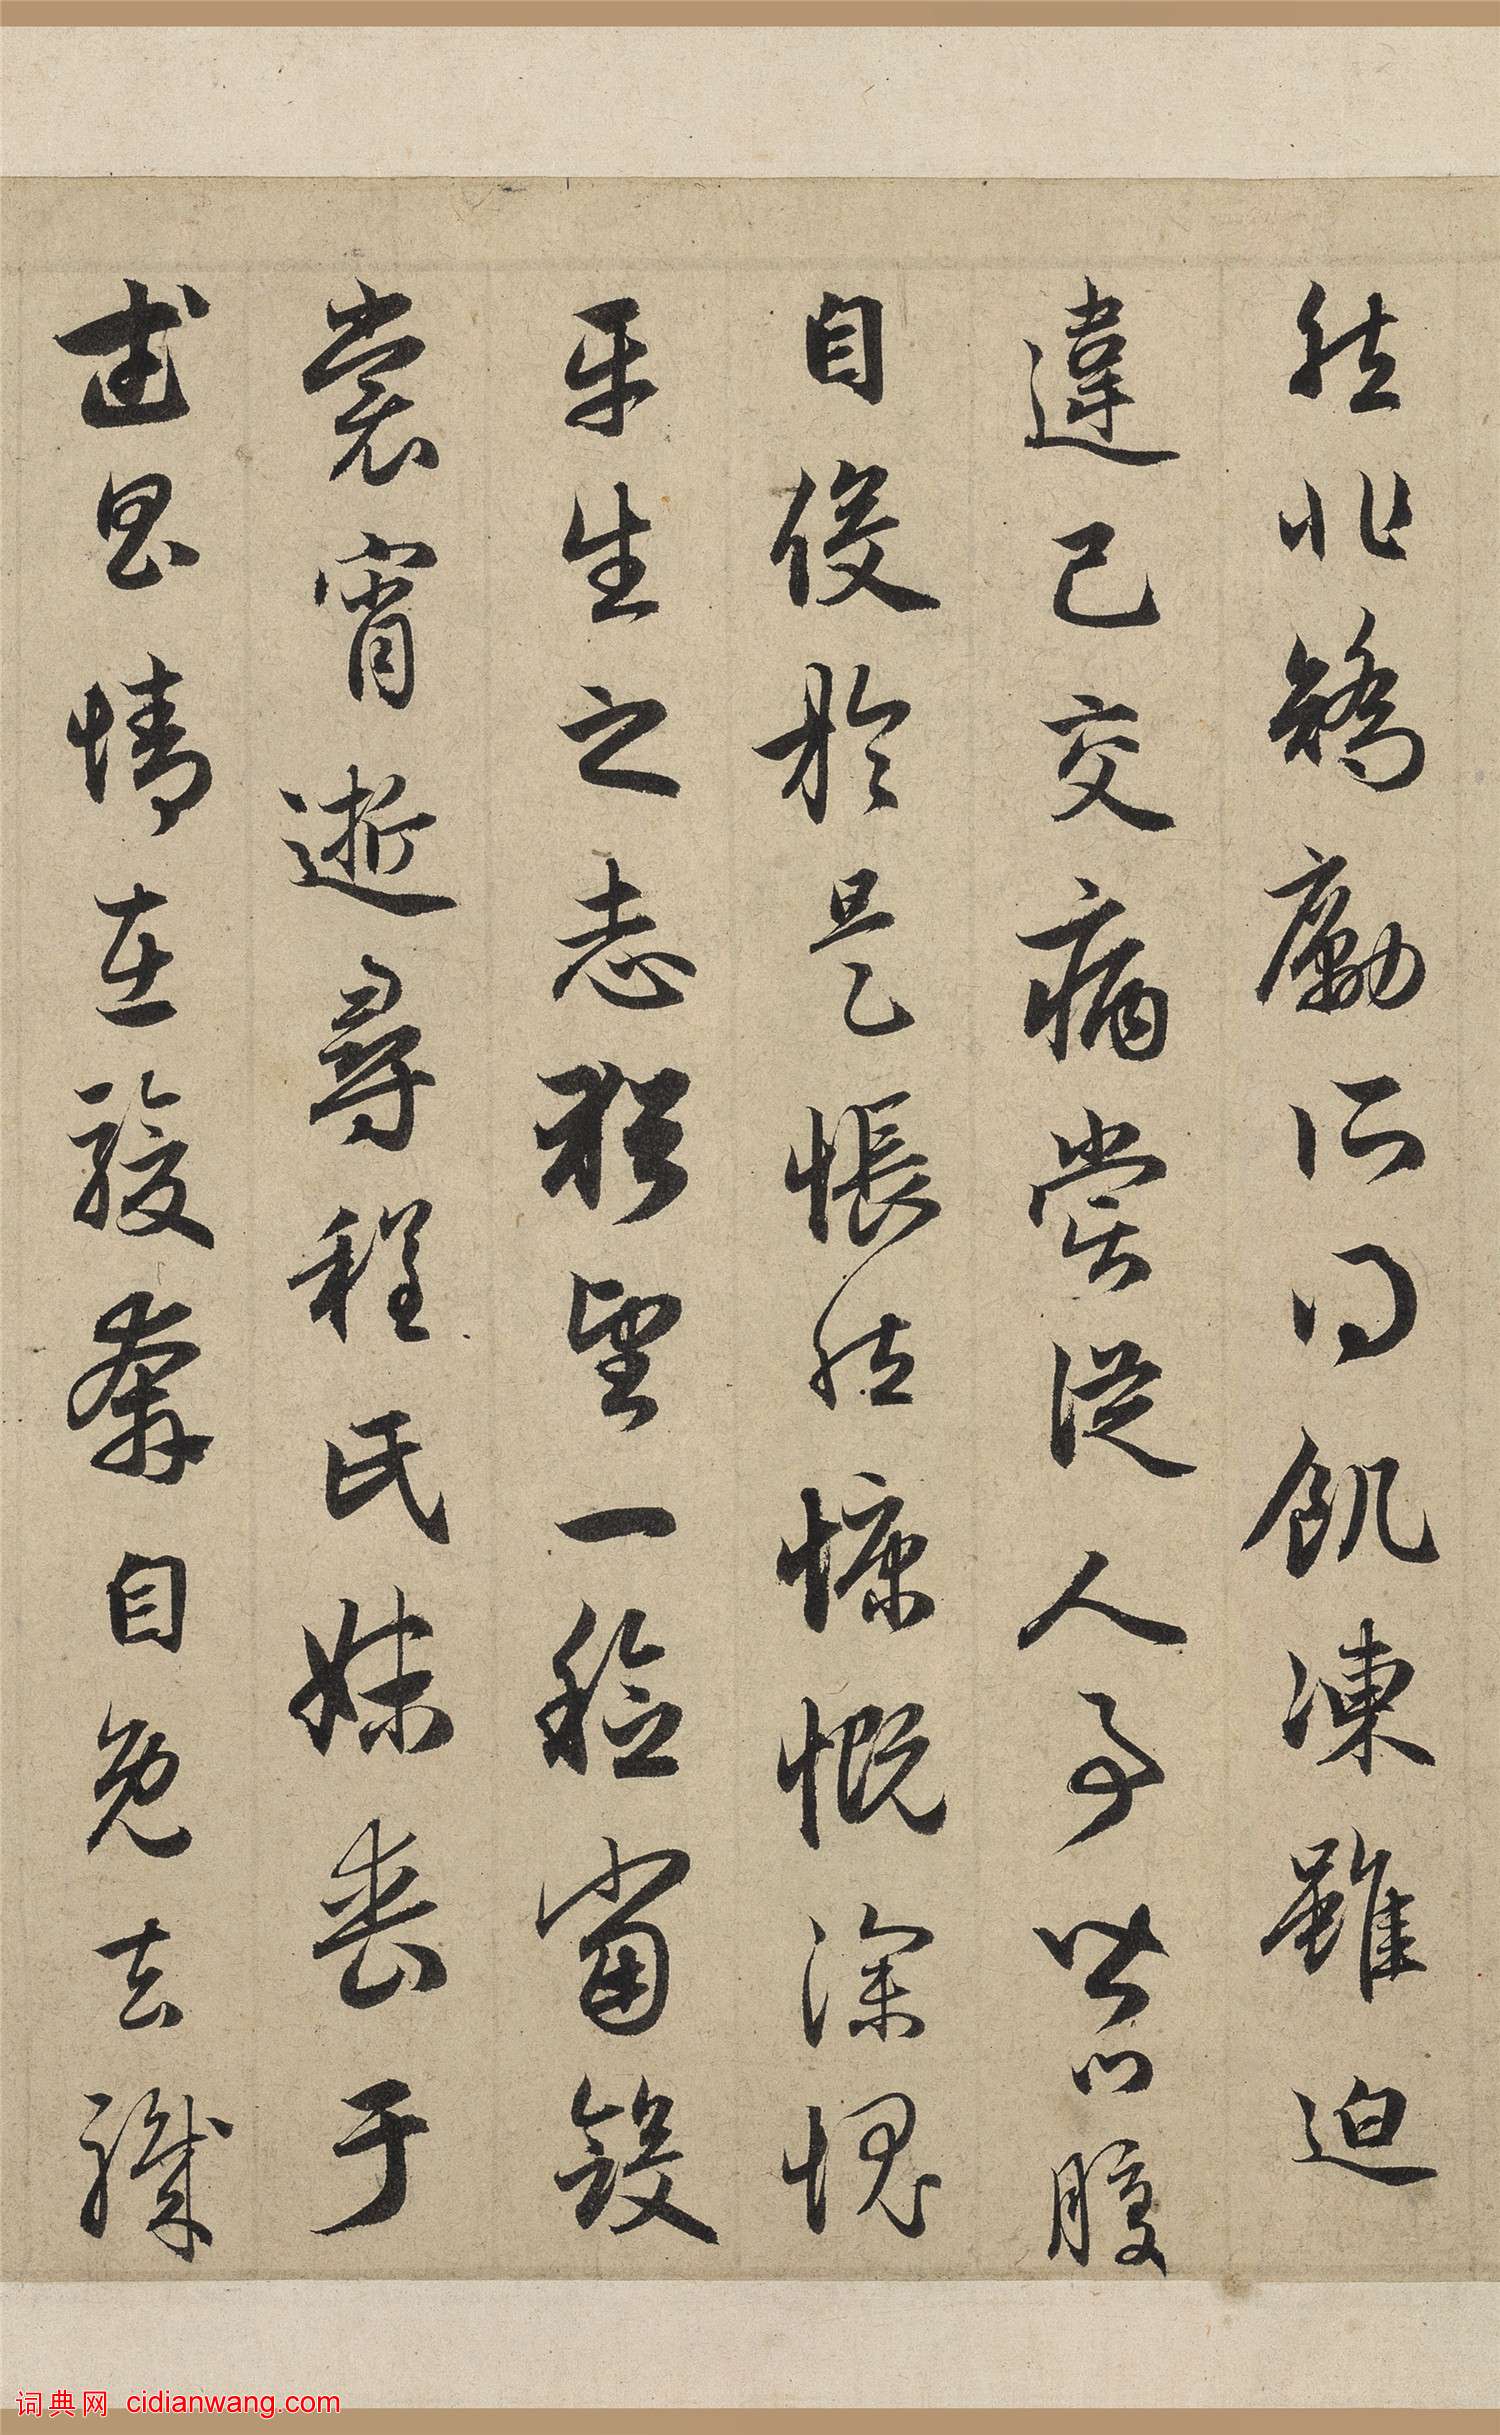 然非矯勵所得飢凍雖迫
違己交病嘗從人事皆口腹
自役於是悵然慷慨深愧
平生之志猶望一稔當斂
裳宵逝尋程氏妹喪于
武昌情在駿奔自免去職
词典网 cidianwang.com